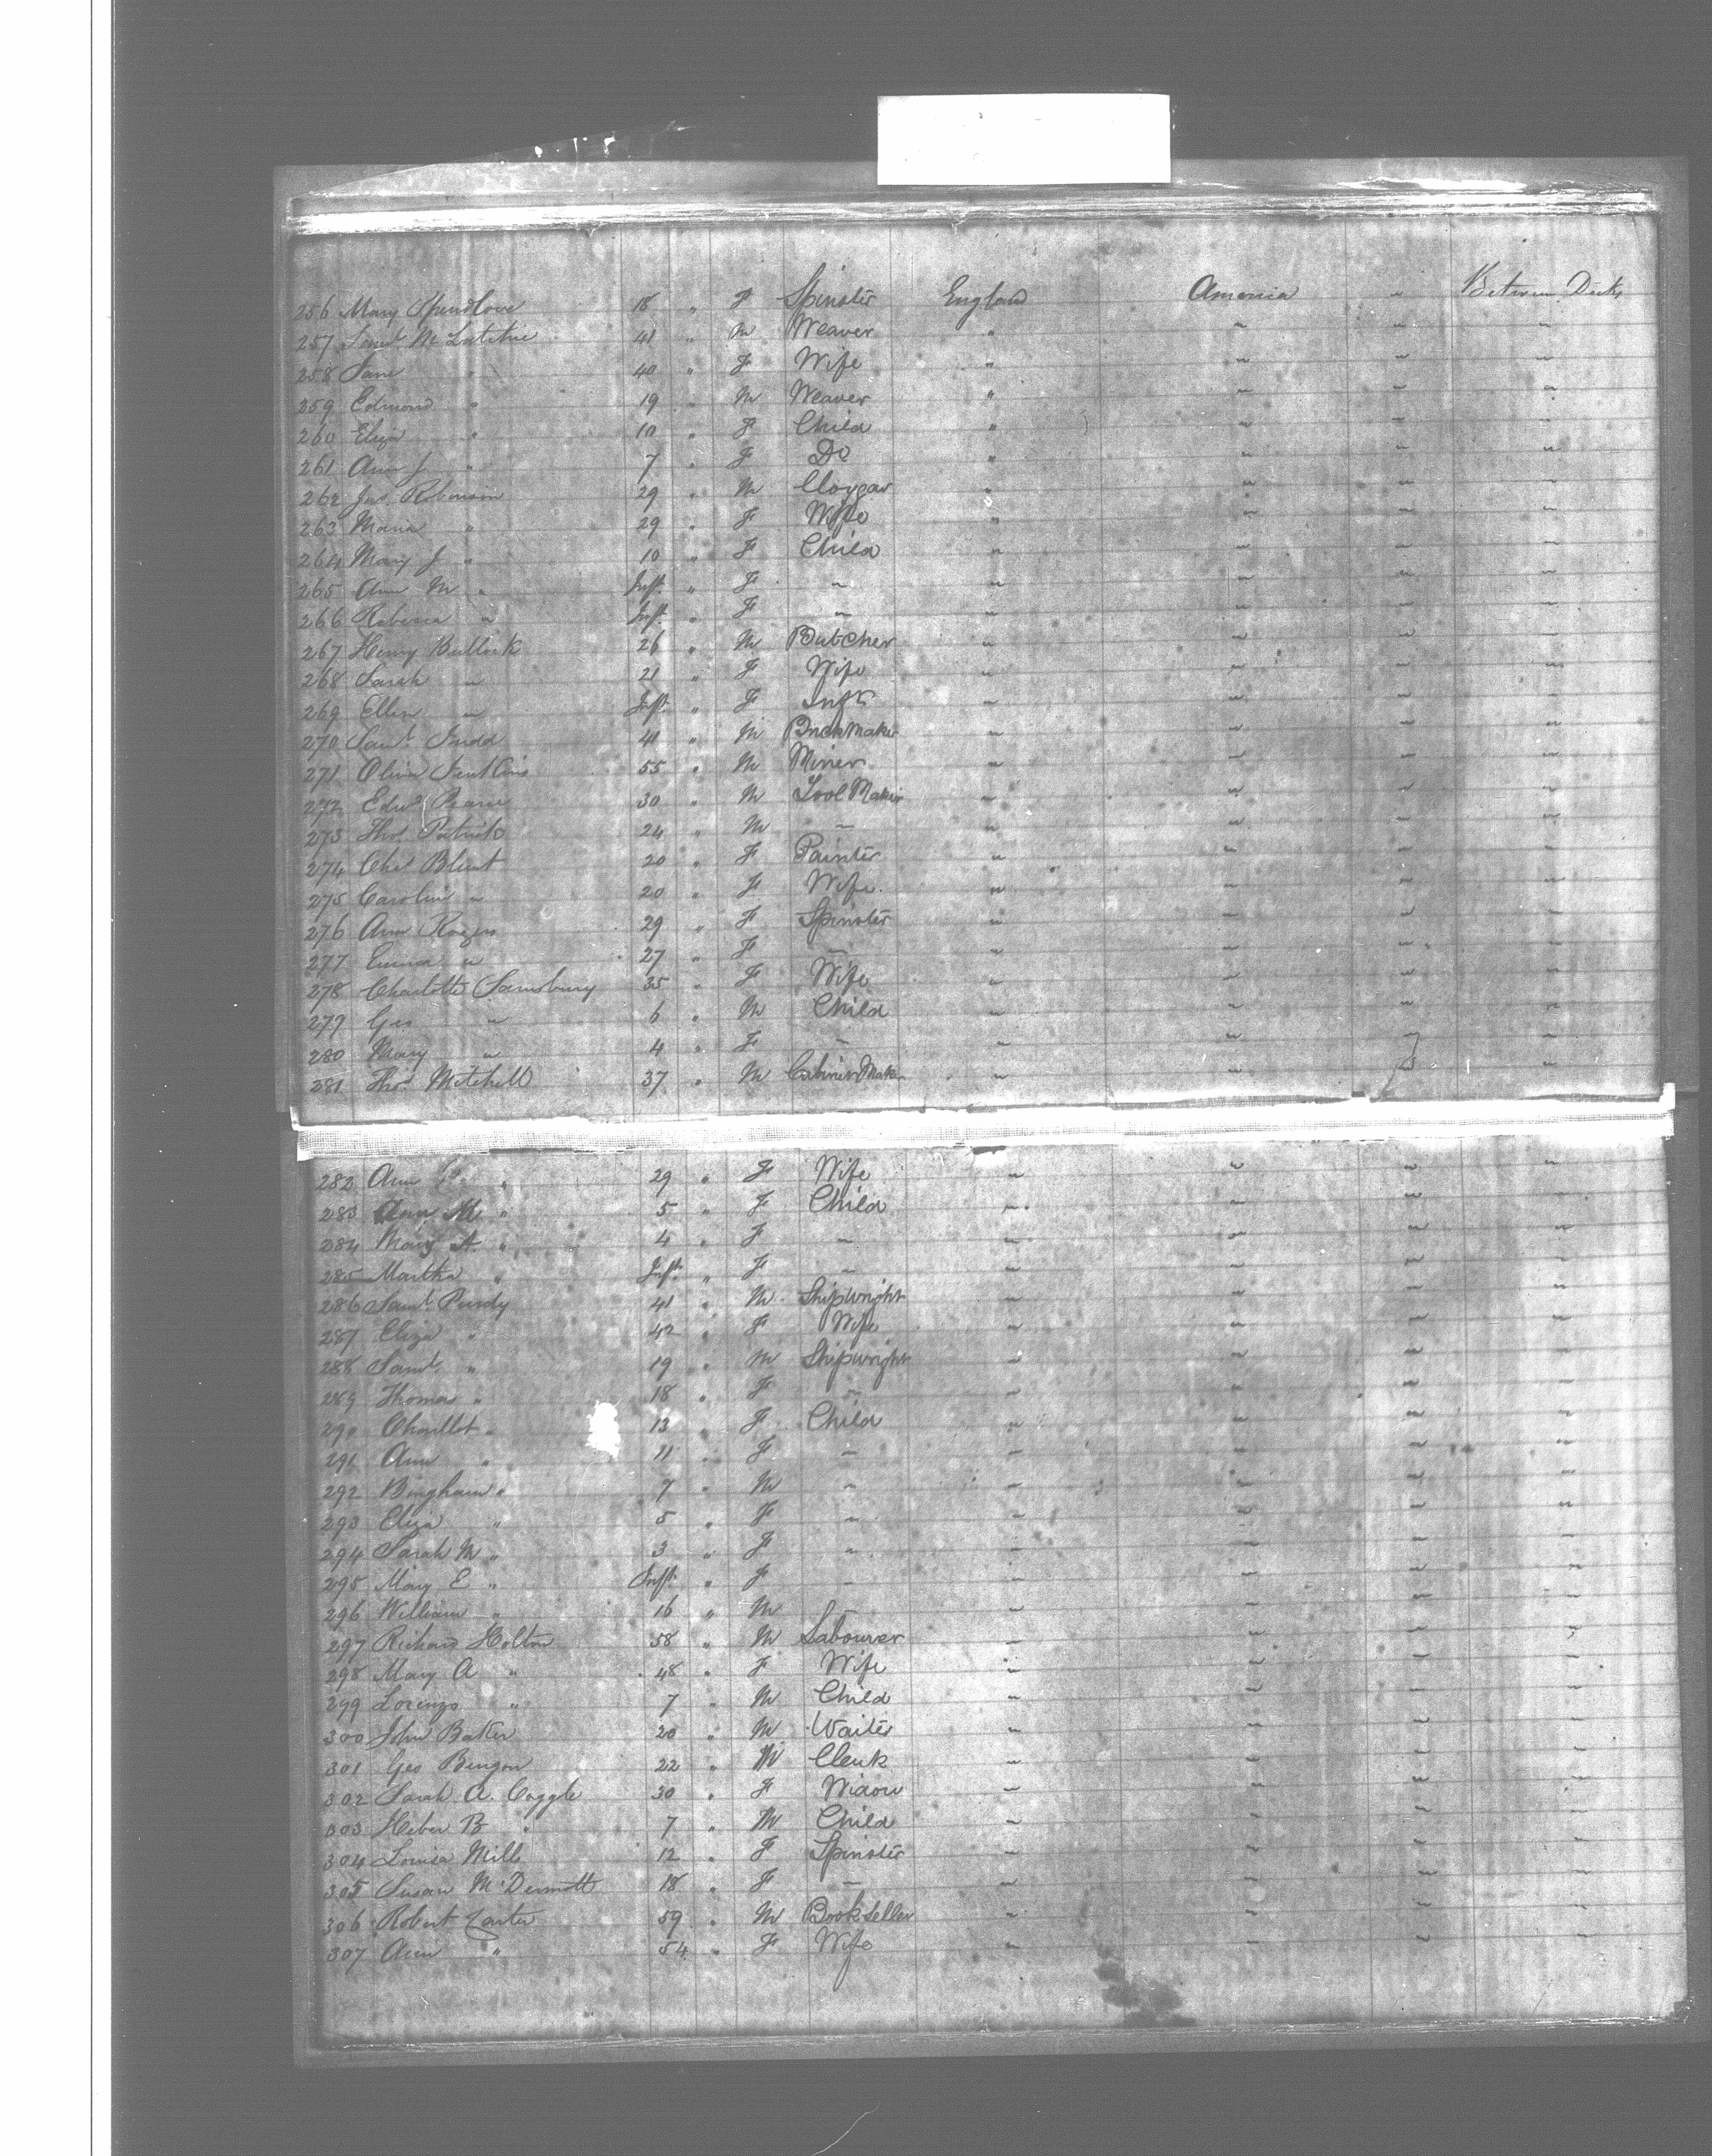 256 Mary Spendlove 18 " F Spinster England America " Between Decks
257 Saml. Mc Latchie 41 " M Weaver " " " "
258 Jane " 40 " F Wife " " " "
259 Edmond " 19 " M Weaver " " " "
260 Eliza " 10 " F Child " " " "
261 Ann J " 7 " F Do " " " "
262 Jas. Robinson 29 " M Cloggar " " " "
263 Maria " 29 " F Wife " " " "
264 Mary J " 10 " F Child " " " "
265 Ann M " Inft. " F " " " " "
266 Rebecca " Inft. " F " " " " "
267 Henry Bullock 26 " M Butcher " " " "
268 Sarah " 21 " F Wife " " " "
269 Ellen " Inft. " F Inft " " " "
270 Saml. Judd 41 " M BrickMaker " " " "
271 Oliver Jenkins 55 " M Miner " " " "
272 Edwd. Pearce 30 " M Tool Maker " " " "
273 Thos. Patrick 24 " M " " " " "
274 Chas Blunt 20 " F Painter " " " "
275 Carolin " 20 " F Wife " " " "
276 Ann Rogers 29 " F Spinster " " " "
277 Emma " 27 " F " " " " "
278 Charlotte Samsbury 35 " F Wife " " " "
279 Geo " 6 " M Child " " " "
280 Mary " 4 " F " " " " "
381 Thos. Mitchell 37 " M Cabinet Mak " " " "
282 Ann " 29 " F Wife " " " "
283 Ann M " 5 " F Child " " " "
284 Mary A. " 4 " F " " " " "
285 Martha " Inft. " F " " " " "
286 Saml. Purdy 41 " M Shipwright " " " "
287 Eliza " 42 " F Wife " " " "
288 Saml. " 19 " M Shipwright " " " "
289 Thomas " 18 " F " " " " "
290 Charllot " 13 " F Child " " " "
291 Ann " 11 " F " " " " "
292 Bingham " 7 " M " " " " "
293 Eliza " 5 " F " " " " "
294 Sarah M " 3 " F " " " " "
295 Mary E " Inft. " F " " " " "
296 William " 16 " M " " " " "
297 Richard Holton 58 " M Labourer " " " "
298 Mary A " 48 " F Wife " " " "
299 Lorenzo " 7 " M Child " " " "
300 John Baker 20 " M Waiter " " " "
301 Geo Benzon 22 " M Clerk " " " "
302 Sarah A. Coggle 30 " F Widow " " " "
303 Heber B " 7 " M Child " " " "
304 Louisa Mills 12 " F Spinster " " " "
305 Susan McDermott 18 " F " " " " "
306 Robert Carter 59 " M Bookseller " " " "
307 Ann " 54 " F Wife " " " "